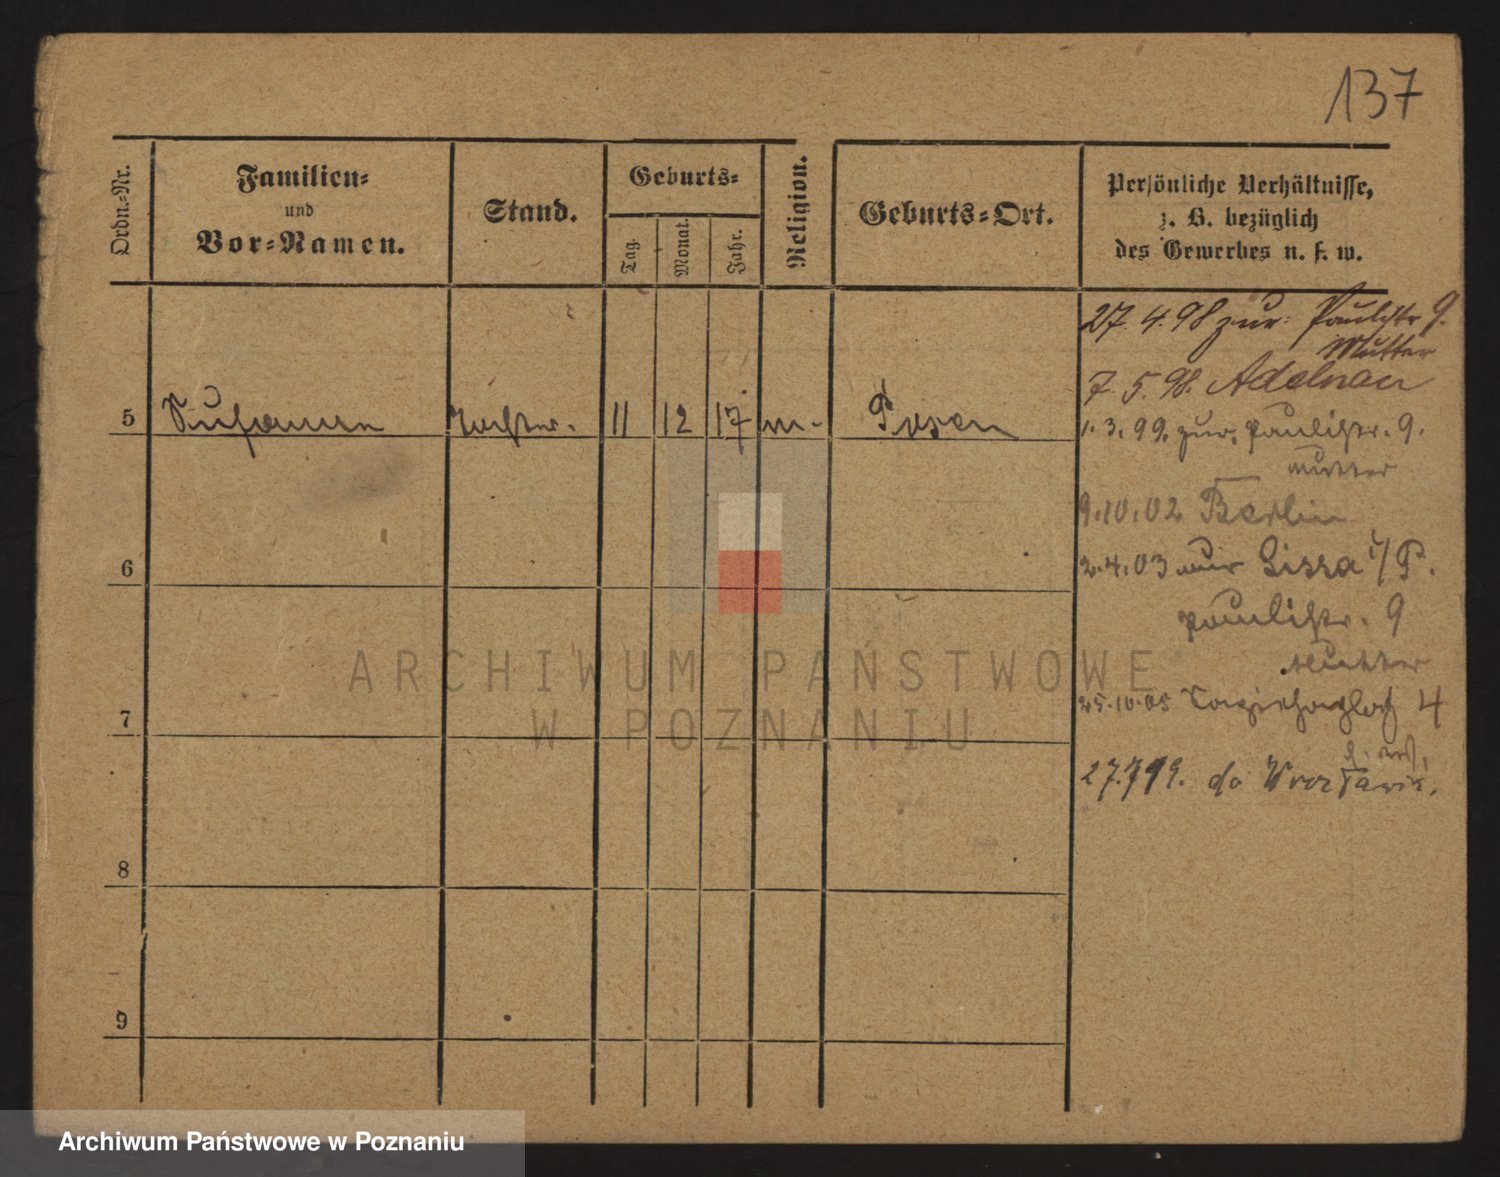 137
Ordn.-Nr.
Familien-
und
Vor-Namen.
Stand.
Geburts-
Tag.
Monat.
Jahr.
Religion.
Geburts-Ort.
Persönliche Verhältnisse,
z. B. bezüglich
des Gewerbes u. s. w.
27.4.98 zur. Paulistr 9.
Mutter
7.5.98. Adelnau
5 Tochter. 11 12 17 Posen
1.3.99. zur. Paulistr. 9.
Mutter
9.10.02 Berlin
6
2.4.03 Lissa i/P.
Paulistr. 9
Mutter
7
25.10.05 4
27.7.
8
9
ARCHIWUM PAŃSTWOWE
W POZNANIU
Archiwum Państwowe w Poznaniu